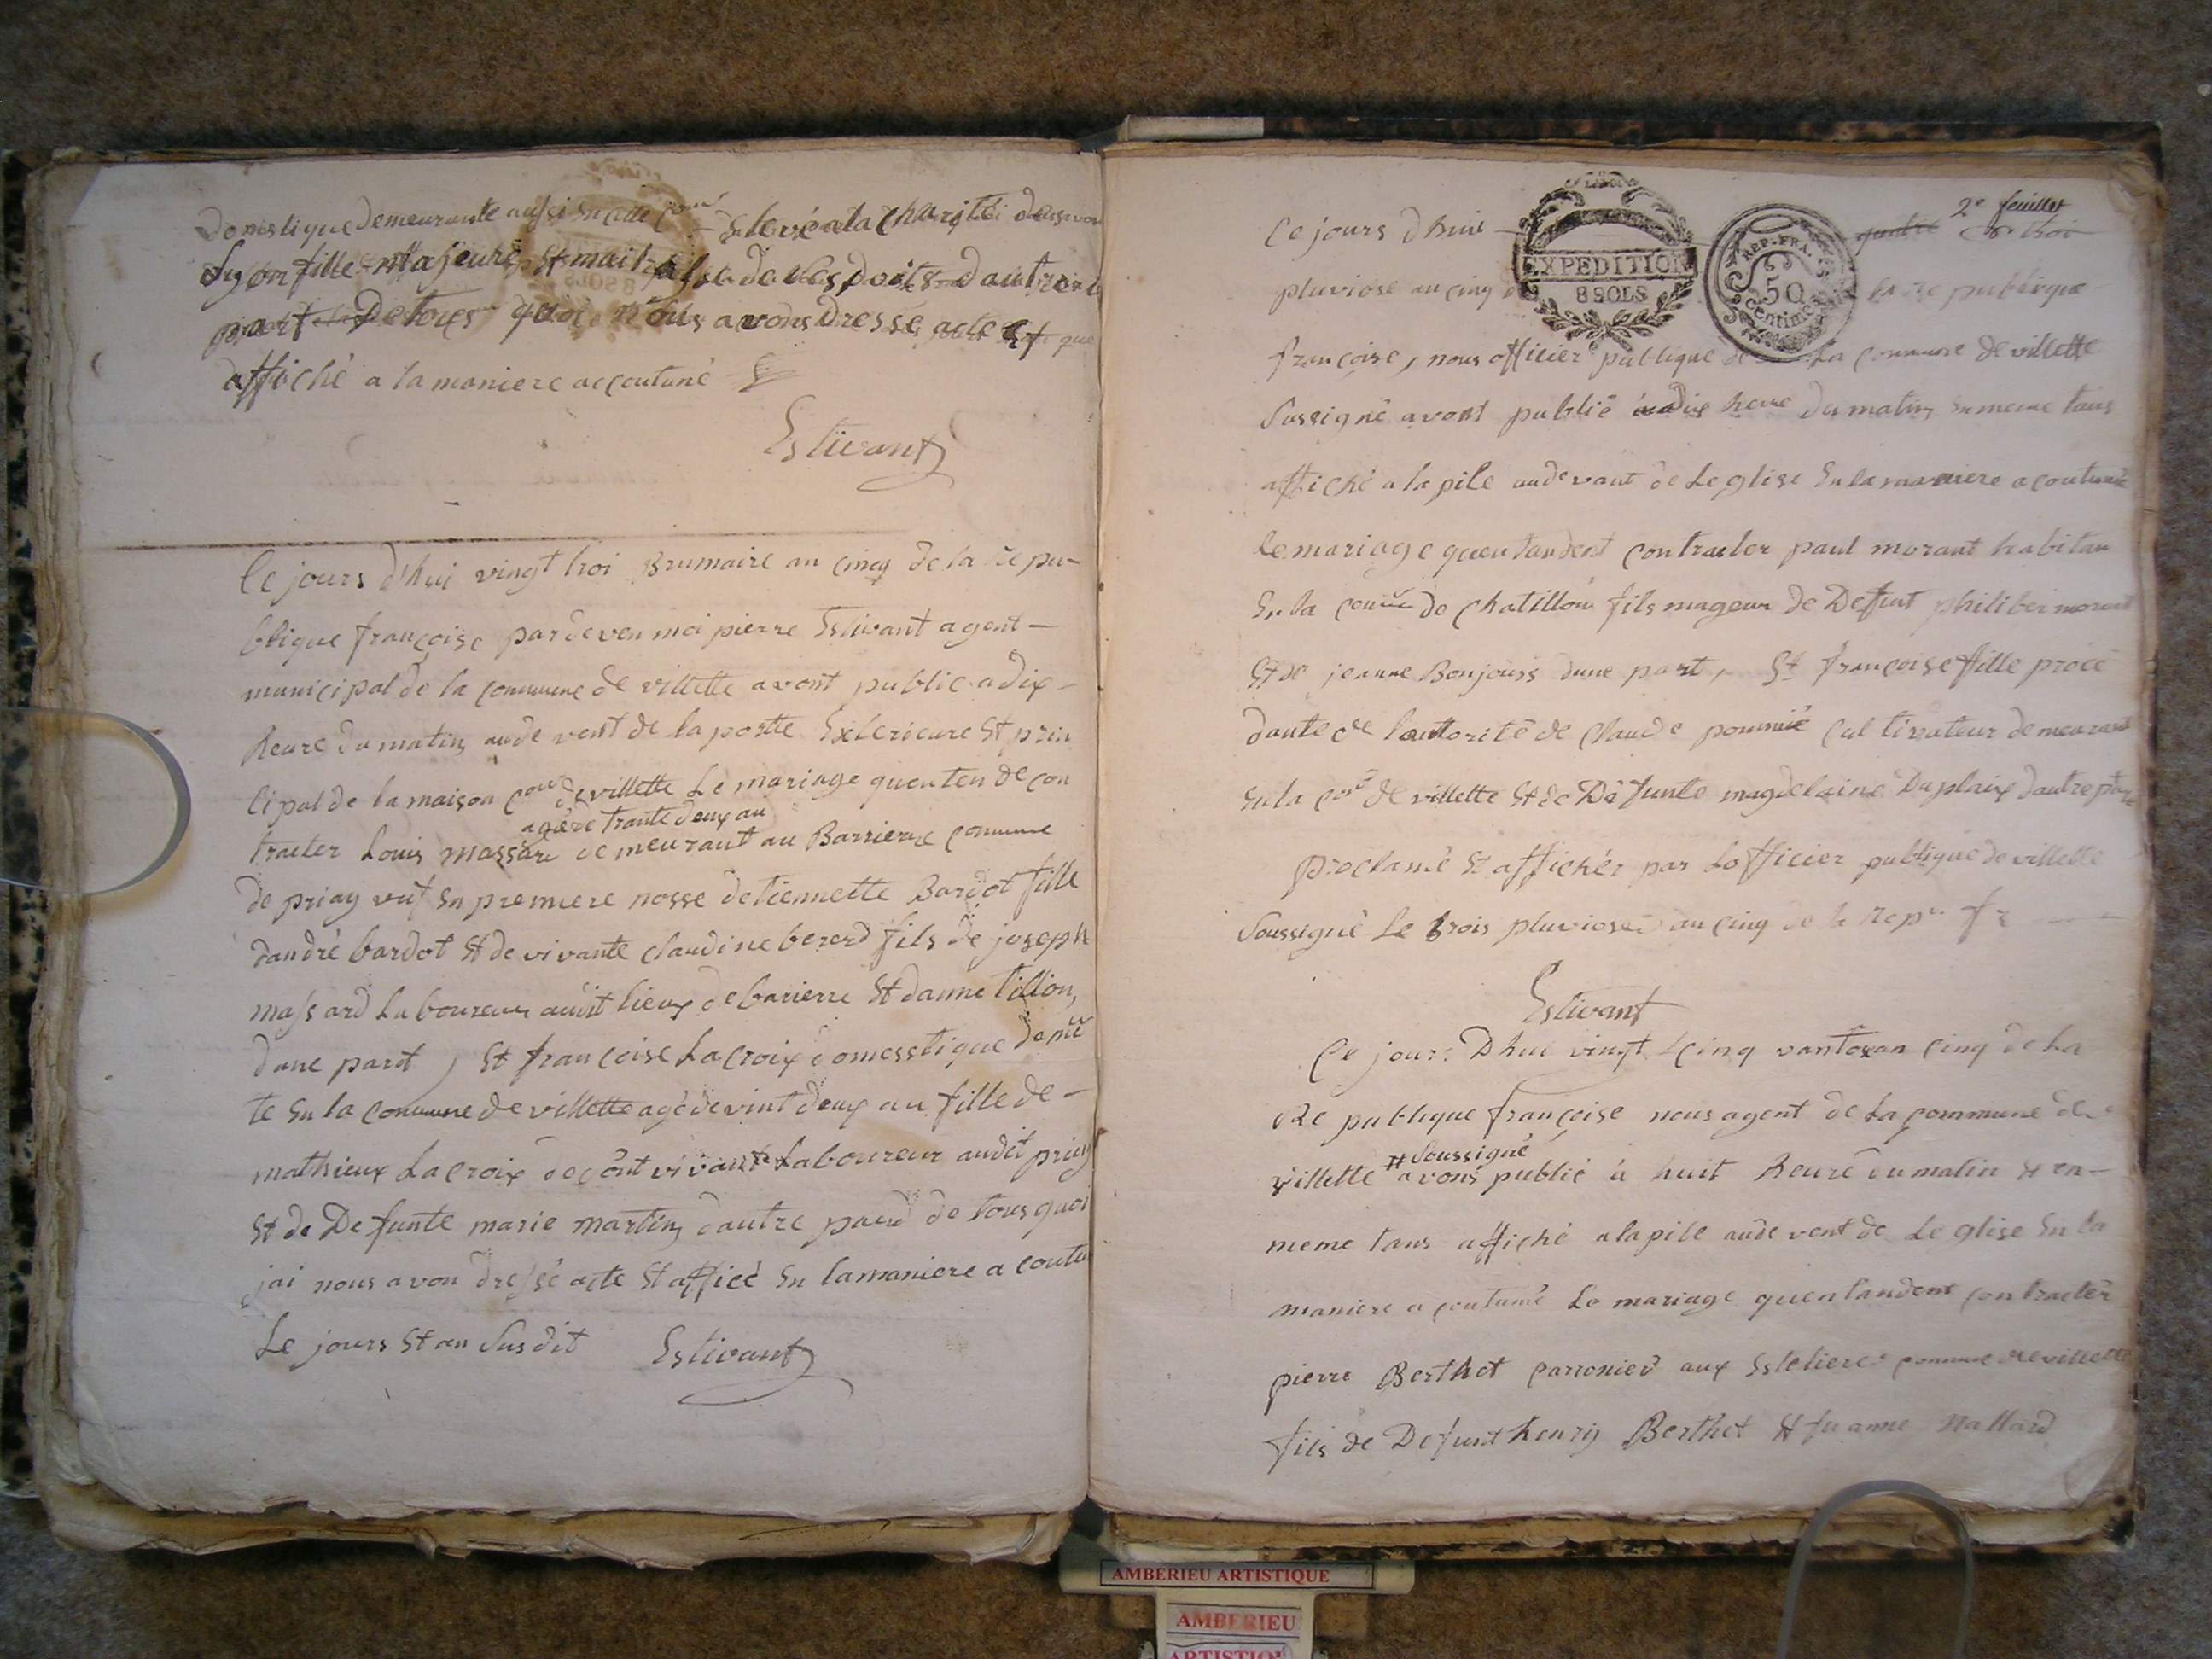 domestique demeurante aussi en cette comᵉ Elevé a la charité de
Lyon fille Majeure St maitresse de ses doits dautre
part De tous quoi nous avons Dressé acte St que
affiché a la maniere accoutuné
Estivant
Ce jours d'hui vingt troi Brumaire an cinq de la repu-
blique françoise par deven moi pierre Estivant agent -
municipal de la commune de villette avont publié a dix -
heure du matin au de vent de la portte Exterieure St prin
cipal de la maison comᵉ de villette Le mariage quenten de con
agée de trante deux an
tracter Louis massard de meurant au Barriere commune
de priay vuf En premiere nosse detiennette Bardot fille
dandré bardot St de vivante claudine bererd fils de joseph
massard Laboureur audit lieux de barierre St danne Tillion,
dune part, St françoise Lacroix domesstique deme
te En la commune de villette agé de vint deux an fille de -
mathieux Lacroix de cont vivant Laboureur audit priay
St de De funte marie martin dautre pard de tous quoi
jai nous avon dressé acte St afficé En la maniere a coutu
Le jours St an Sus dit Estivant
2e feuillet
Ce jours dhuit quatre troi
EXPEDITION
8 SOLS
REP. FRA.
50
Centimes
pluviose an cinq de la re publique
françoise, nous officier publique de La commune de villette
Sussigné avont publié a dix heure du matin En meme tans
affiché a la pile au de vant de Leglise En la maniere a coutumé
le mariage quentandent contracter paul morant habitan
En la comᵉ de chatillon fils mageur de Defunt philiber morant
St de jeanne Bonjours dune part, St françoise fille procé
dante de lauttorité de Claude pommié cultivateur demeurant
En la comᵉ de villette St de Défunte magdelaine Duplaix dautre part
proclamé St affichér par Lofficier publique de villette
Soussigné Le trois pluviose an cinq de la Repᵘ fr
Estivant
Ce jours Dhui vingt cinq vantosan cinq de La
Re publique françoise nous agent de La commune de
Soussigné
villette avons publié à huit heure du matin St en -
meme tans affiché a la pile au de vent de Le glise En la
maniere a coutumé Le mariage quentandent contracter
pierre Berthet aux Esteliere commune de villette
fils de Defunt henry Berthet St fu anne Mallard
AMBERIEU ARTISTIQUE
AMBERIEU
ARTISTIQ